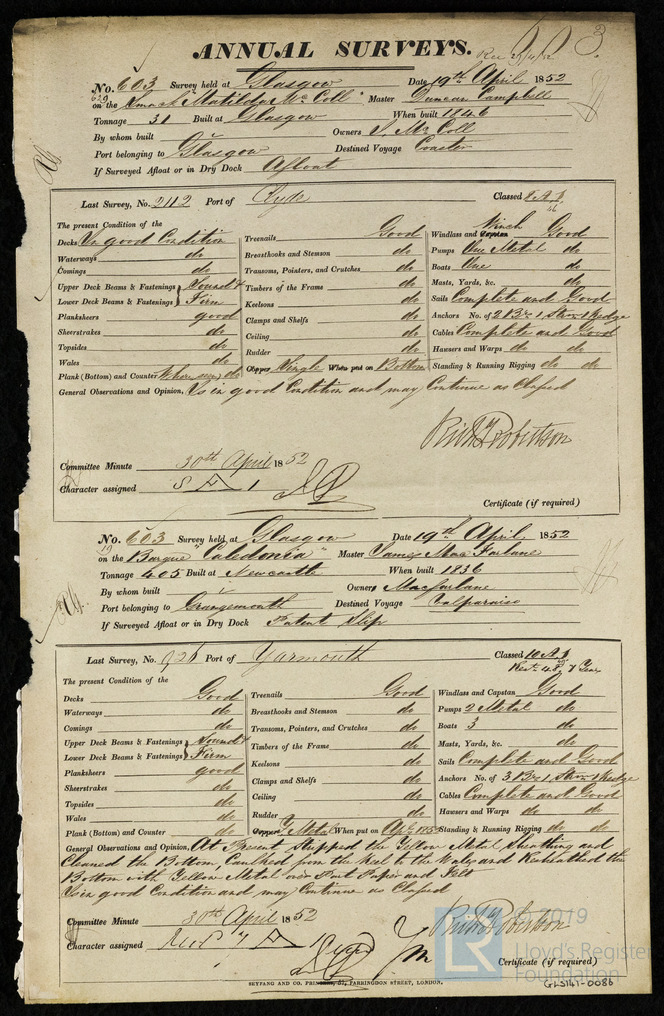 3.
ANNUAL SURVEYS.
No. 603 Survey held at Glasgow Date 19th April 1852
on the Smack "Matilda McColl" Master Duncan Campbell
Tonnage 31 Built at Glasgow When built 1846
By whom built Owners J. McColl
Port belonging to Glasgow Destined Voyage Coaster
If Surveyed Afloat or in Dry Dock Afloat
Last Survey, No. 2112 Port of Clyde Classed 8 A 1
46
The present Condition of the
Decks In good Condition
Waterways do
Comings do
Upper Deck Beams & Fastenings } Sound &
Lower Deck Beams & Fastenings } Firm
Planksheers good
Sheerstrakes do
Topsides do
Wales do
Plank (Bottom) and Counter Where seen do
Treenails Good
Breasthooks and Stemson do
Transoms, Pointers, and Crutches do
Timbers of the Frame do
Keelsons do
Clamps and Shelfs do
Ceiling do
Rudder do
Copper Single When put on Bottom
Winch
Windlass and Capstan Good
Pumps One Metal do
Boats One do
Masts, Yards, &c. do
Sails Complete and Good
Anchors No. of 2 Brs 1 Strm 1 Kedge
Cables Complete and Good
Hawsers and Warps do do
Standing & Running Rigging do do
General Observations and Opinion, Is in good Condition and may Continue as Classed
Committee Minute 30th April 1852
Character assigned 8 A 1
Certificate (if required)
No. 603 Survey held at Glasgow Date 19th April 1852
on the Barque "Caledonia" Master James MacFarlane
Tonnage 405 Built at Newcastle When built 1836
By whom built Owners Macfarlane
Port belonging to Grangemouth Destined Voyage Valparaiso
If Surveyed Afloat or in Dry Dock Patent Slip
Last Survey, No. 926 Port of Yarmouth Classed 10 A 1
Rest. 48, 7 Years
The present Condition of the
Decks Good
Waterways do
Comings do
Upper Deck Beams & Fastenings } Sound &
Lower Deck Beams & Fastenings } Firm
Planksheers good
Sheerstrakes do
Topsides do
Wales do
Plank (Bottom) and Counter do
Treenails Good
Breasthooks and Stemson do
Transoms, Pointers, and Crutches do
Timbers of the Frame do
Keelsons do
Clamps and Shelfs do
Ceiling do
Rudder do
Copper Y. Metal When put on Apl. 1852
Windlass and Capstan Good
Pumps 2 Metal do
Boats 3 do
Masts, Yards, &c. do
Sails Complete and Good
Anchors No. of 3 Brs 1 Strm 1 Kedge
Cables Complete and Good
Hawsers and Warps do do
Standing & Running Rigging do do
General Observations and Opinion, At Present Stripped the Yellow Metal Sheathing and
Cleaned the Bottom, Caulked from the Keel to the Wales and Resheathed the
Bottom with Yellow Metal over Port Paper and Felt
Is in good Condition and may Continue as Classed
Committee Minute 30th April 1852
Character assigned
Certificate (if required)
SEYFANG AND CO. PRINTERS, 57, FARRINGDON STREET, LONDON.
© 2019
LR
Lloyd's Register
Foundation
GLS141-0086